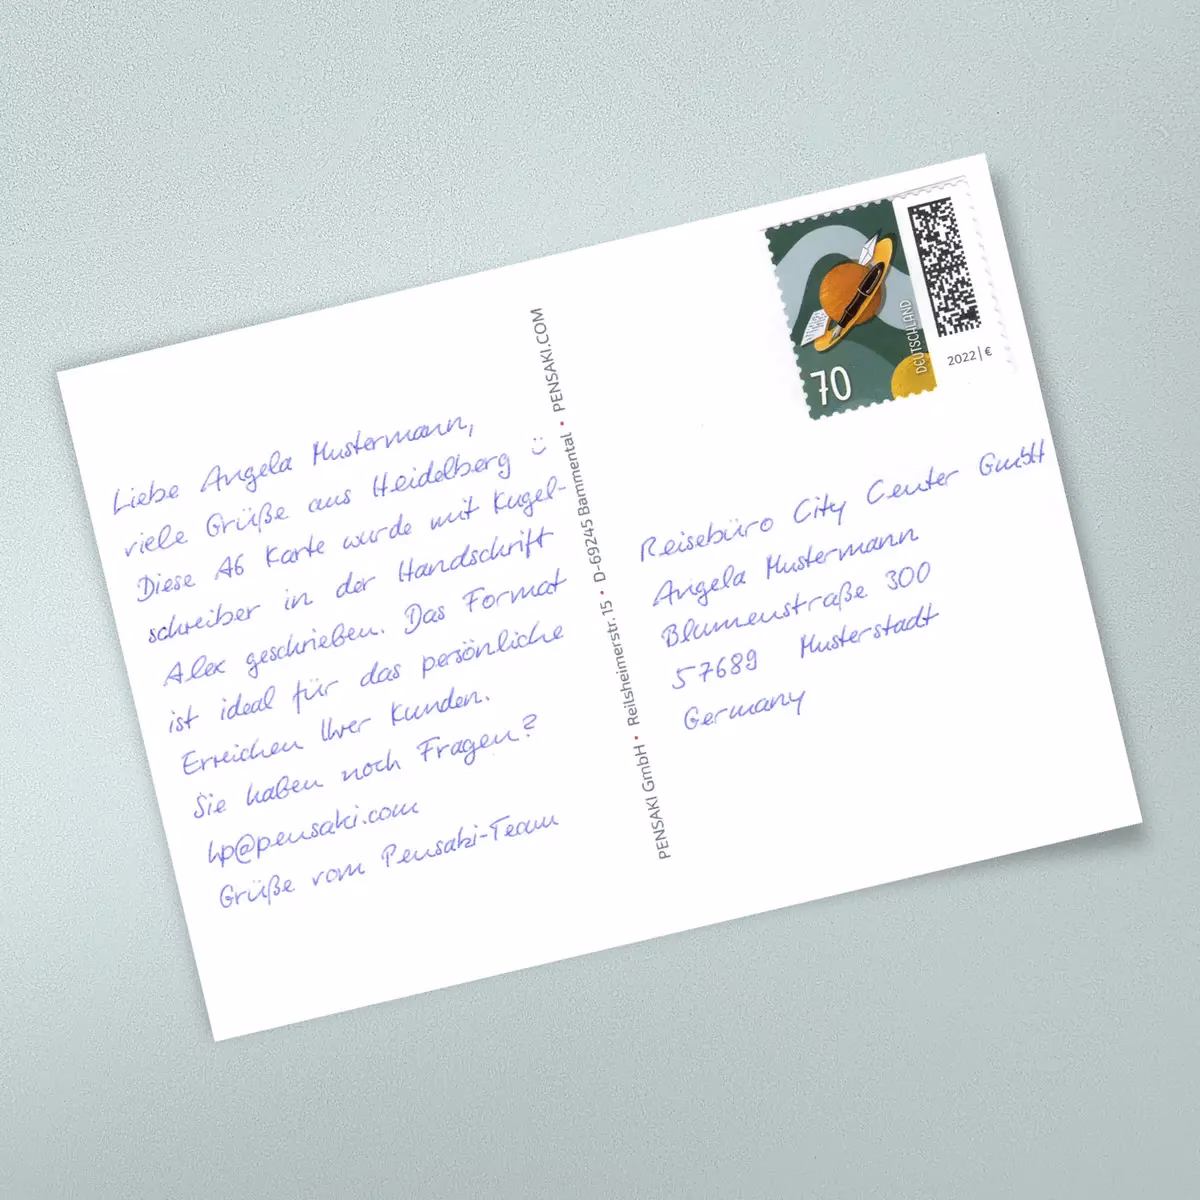 Liebe Angela Mustermann,
viele Grüße aus Heidelberg :)
Diese A6 Karte wurde mit Kugel-
schreiber in der Handschrift
Alex geschrieben. Das Format
ist ideal für das persönliche
Erreichen Ihrer Kunden.
Sie haben noch Fragen?
hp@pensaki.com
Grüße vom Pensaki-Team
PENSAKI GmbH • Reilsheimerstr. 15 • D-69245 Bammental • PENSAKI.COM
70
DEUTSCHLAND
2022 | €
Reisebüro City Center GmbH
Angela Mustermann
Blumenstraße 300
57689 Musterstadt
Germany